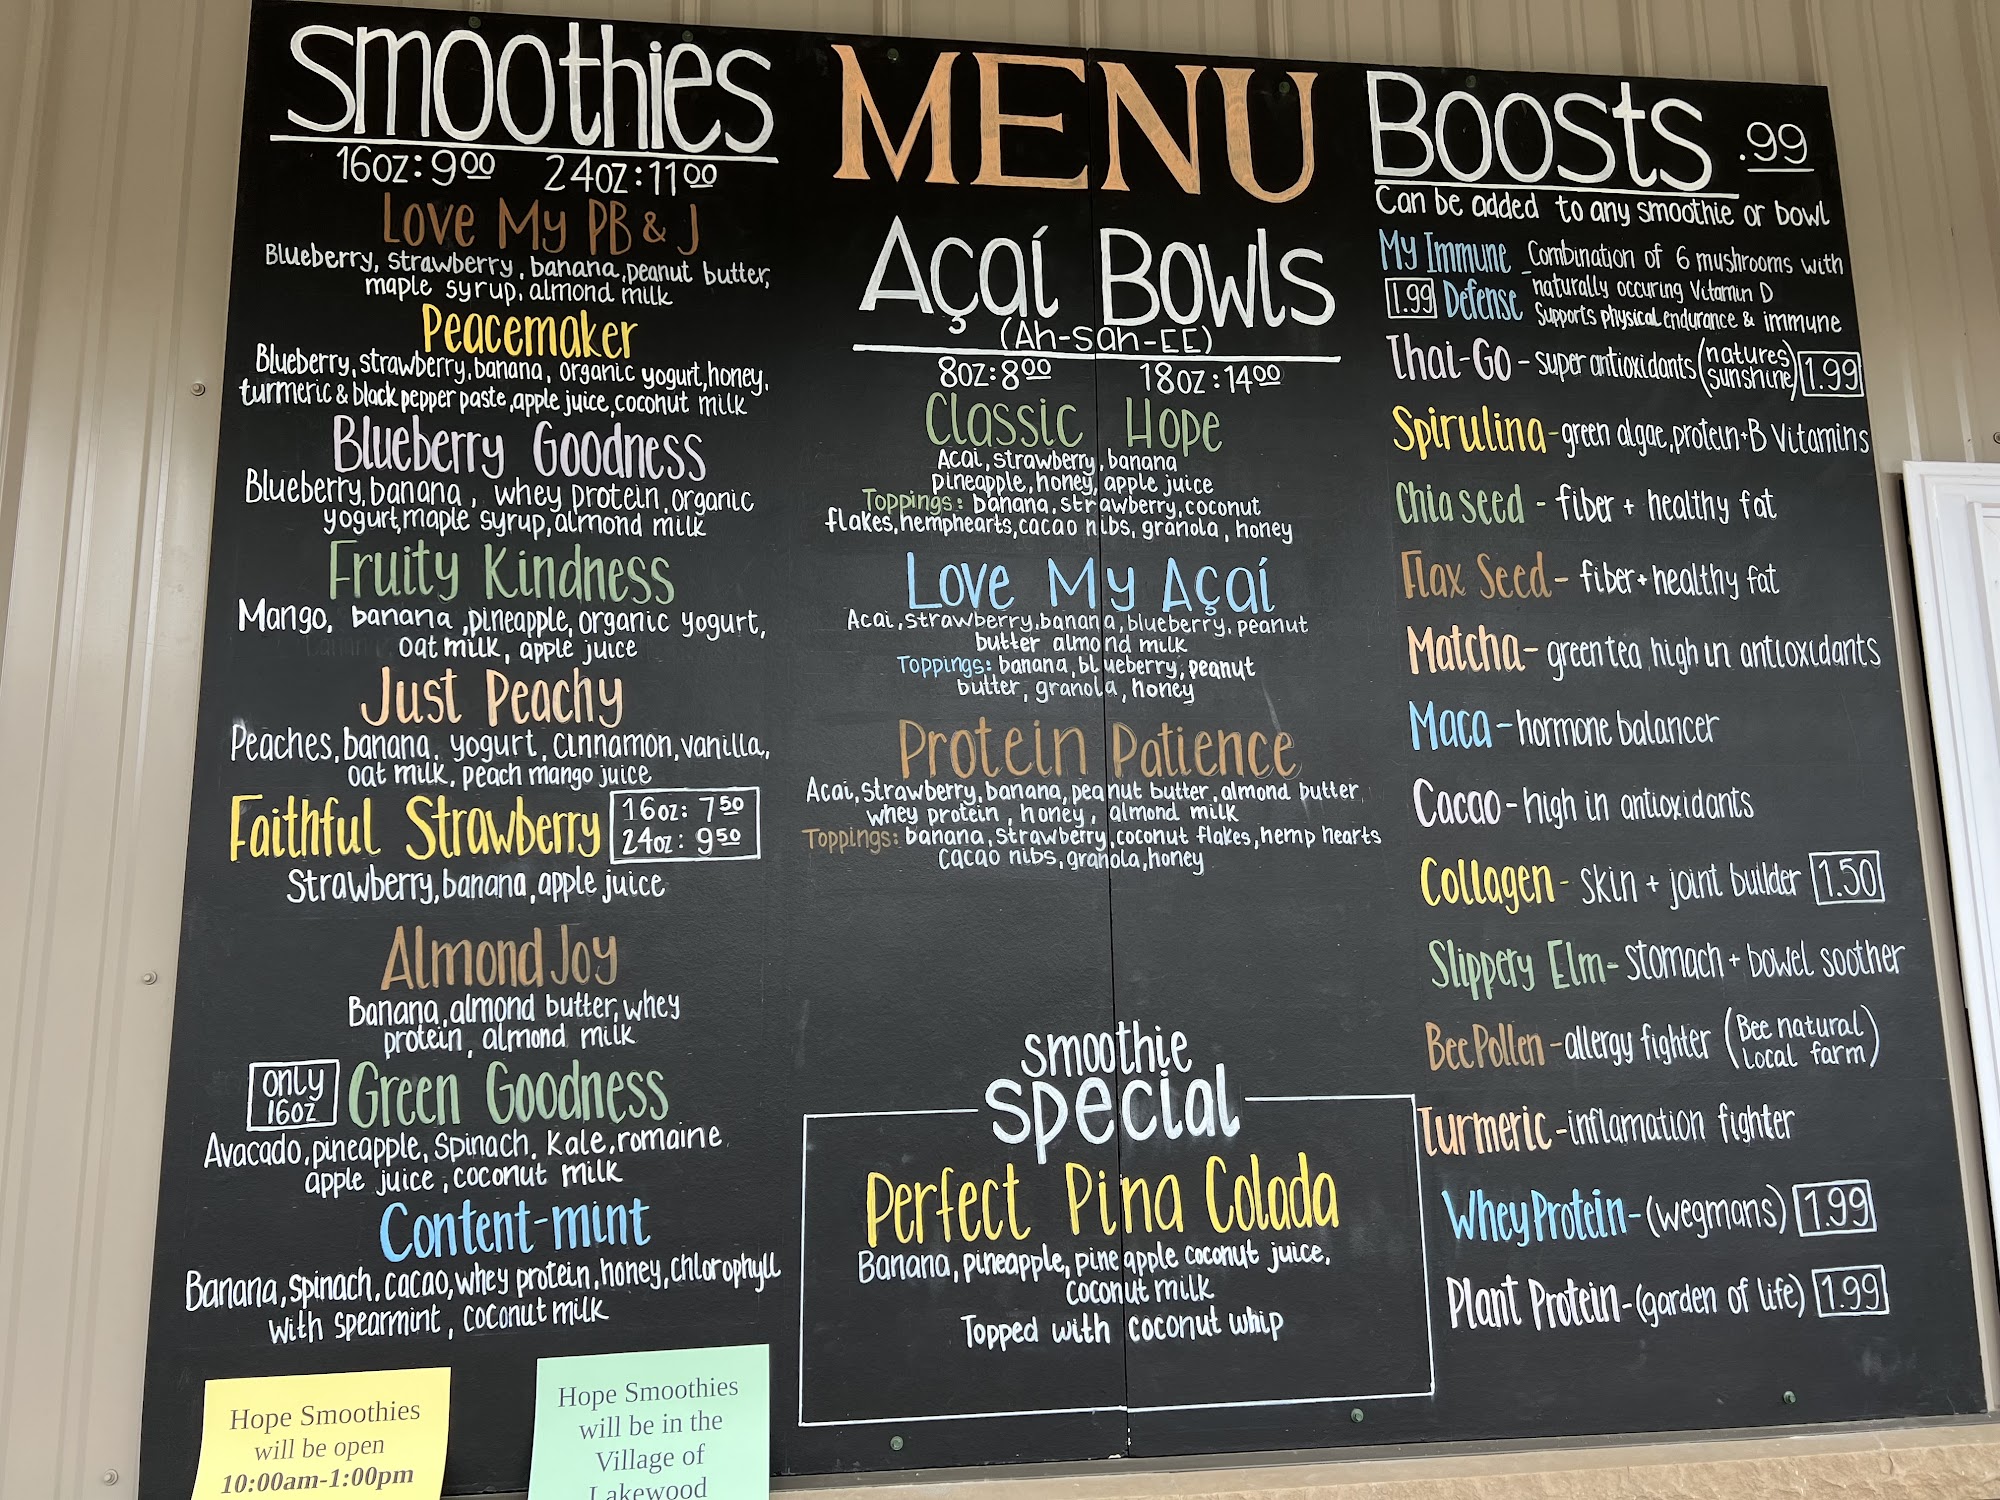 Smoothies
16oz: 9.00 24oz: 11.00
Love My PB & J
Blueberry, strawberry, banana, peanut butter,
maple syrup, almond milk
Peacemaker
Blueberry, strawberry, banana, organic yogurt, honey,
turmeric & black pepper paste, apple juice, coconut milk
Blueberry Goodness
Blueberry, banana, whey protein, organic
yogurt, maple syrup, almond milk
Fruity Kindness
Mango, banana, pineapple, organic yogurt,
oat milk, apple juice
Just Peachy
Peaches, banana, yogurt, cinnamon, vanilla,
oat milk, peach mango juice
Faithful Strawberry
16oz: 7.50
24oz: 9.50
Strawberry, banana, apple juice
Almond Joy
Banana, almond butter, whey
protein, almond milk
only
16oz
Green Goodness
Avacado, pineapple, spinach, kale, romaine
apple juice, coconut milk
Content-mint
Banana, spinach, cacao, whey protein, honey, chlorophyll
with spearmint, coconut milk
Hope Smoothies
will be open
10:00am-1:00pm
Hope Smoothies
will be in the
Village of
Lakewood
MENU
Açaí Bowls
(Ah-sah-EE)
8oz: 8.00 18oz: 14.00
Classic Hope
Acai, strawberry, banana
pineapple, honey, apple juice
Toppings: banana, strawberry, coconut
flakes, hemphearts, cacao nibs, granola, honey
Love My Açaí
Acai, strawberry, banana, blueberry, peanut
butter almond milk
Toppings: banana, blueberry, peanut
butter, granola, honey
Protein Patience
Acai, strawberry, banana, peanut butter, almond butter,
whey protein, honey, almond milk
Toppings: banana, strawberry, coconut flakes, hemp hearts
cacao nibs, granola, honey
smoothie
special
Perfect Pina Colada
Banana, pineapple, pineapple coconut juice,
coconut milk
Topped with coconut whip
Boosts .99
Can be added to any smoothie or bowl
My Immune - Combination of 6 mushrooms with
1.99 Defense naturally occuring Vitamin D
Supports physical endurance & immune
Thai-Go - super antioxidants (natures sunshine) 1.99
Spirulina - green algae, protein + B Vitamins
Chia seed - fiber + healthy fat
Flax Seed - fiber + healthy fat
Matcha - green tea, high in antioxidants
Maca - hormone balancer
Cacao - high in antioxidants
Collagen - skin + joint builder 1.50
Slippery Elm - stomach + bowel soother
Bee Pollen - allergy fighter (Bee natural local farm)
Turmeric - inflamation fighter
Whey Protein - (wegmans) 1.99
Plant Protein - (garden of life) 1.99